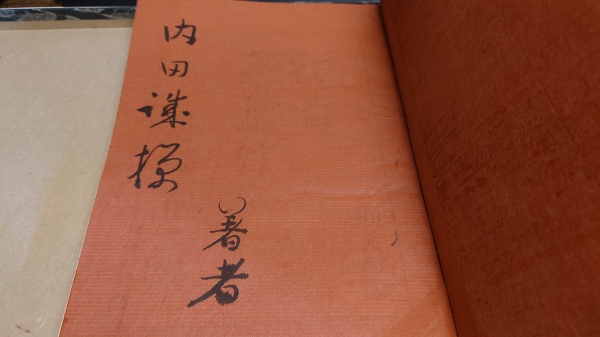 内田誠様
著者